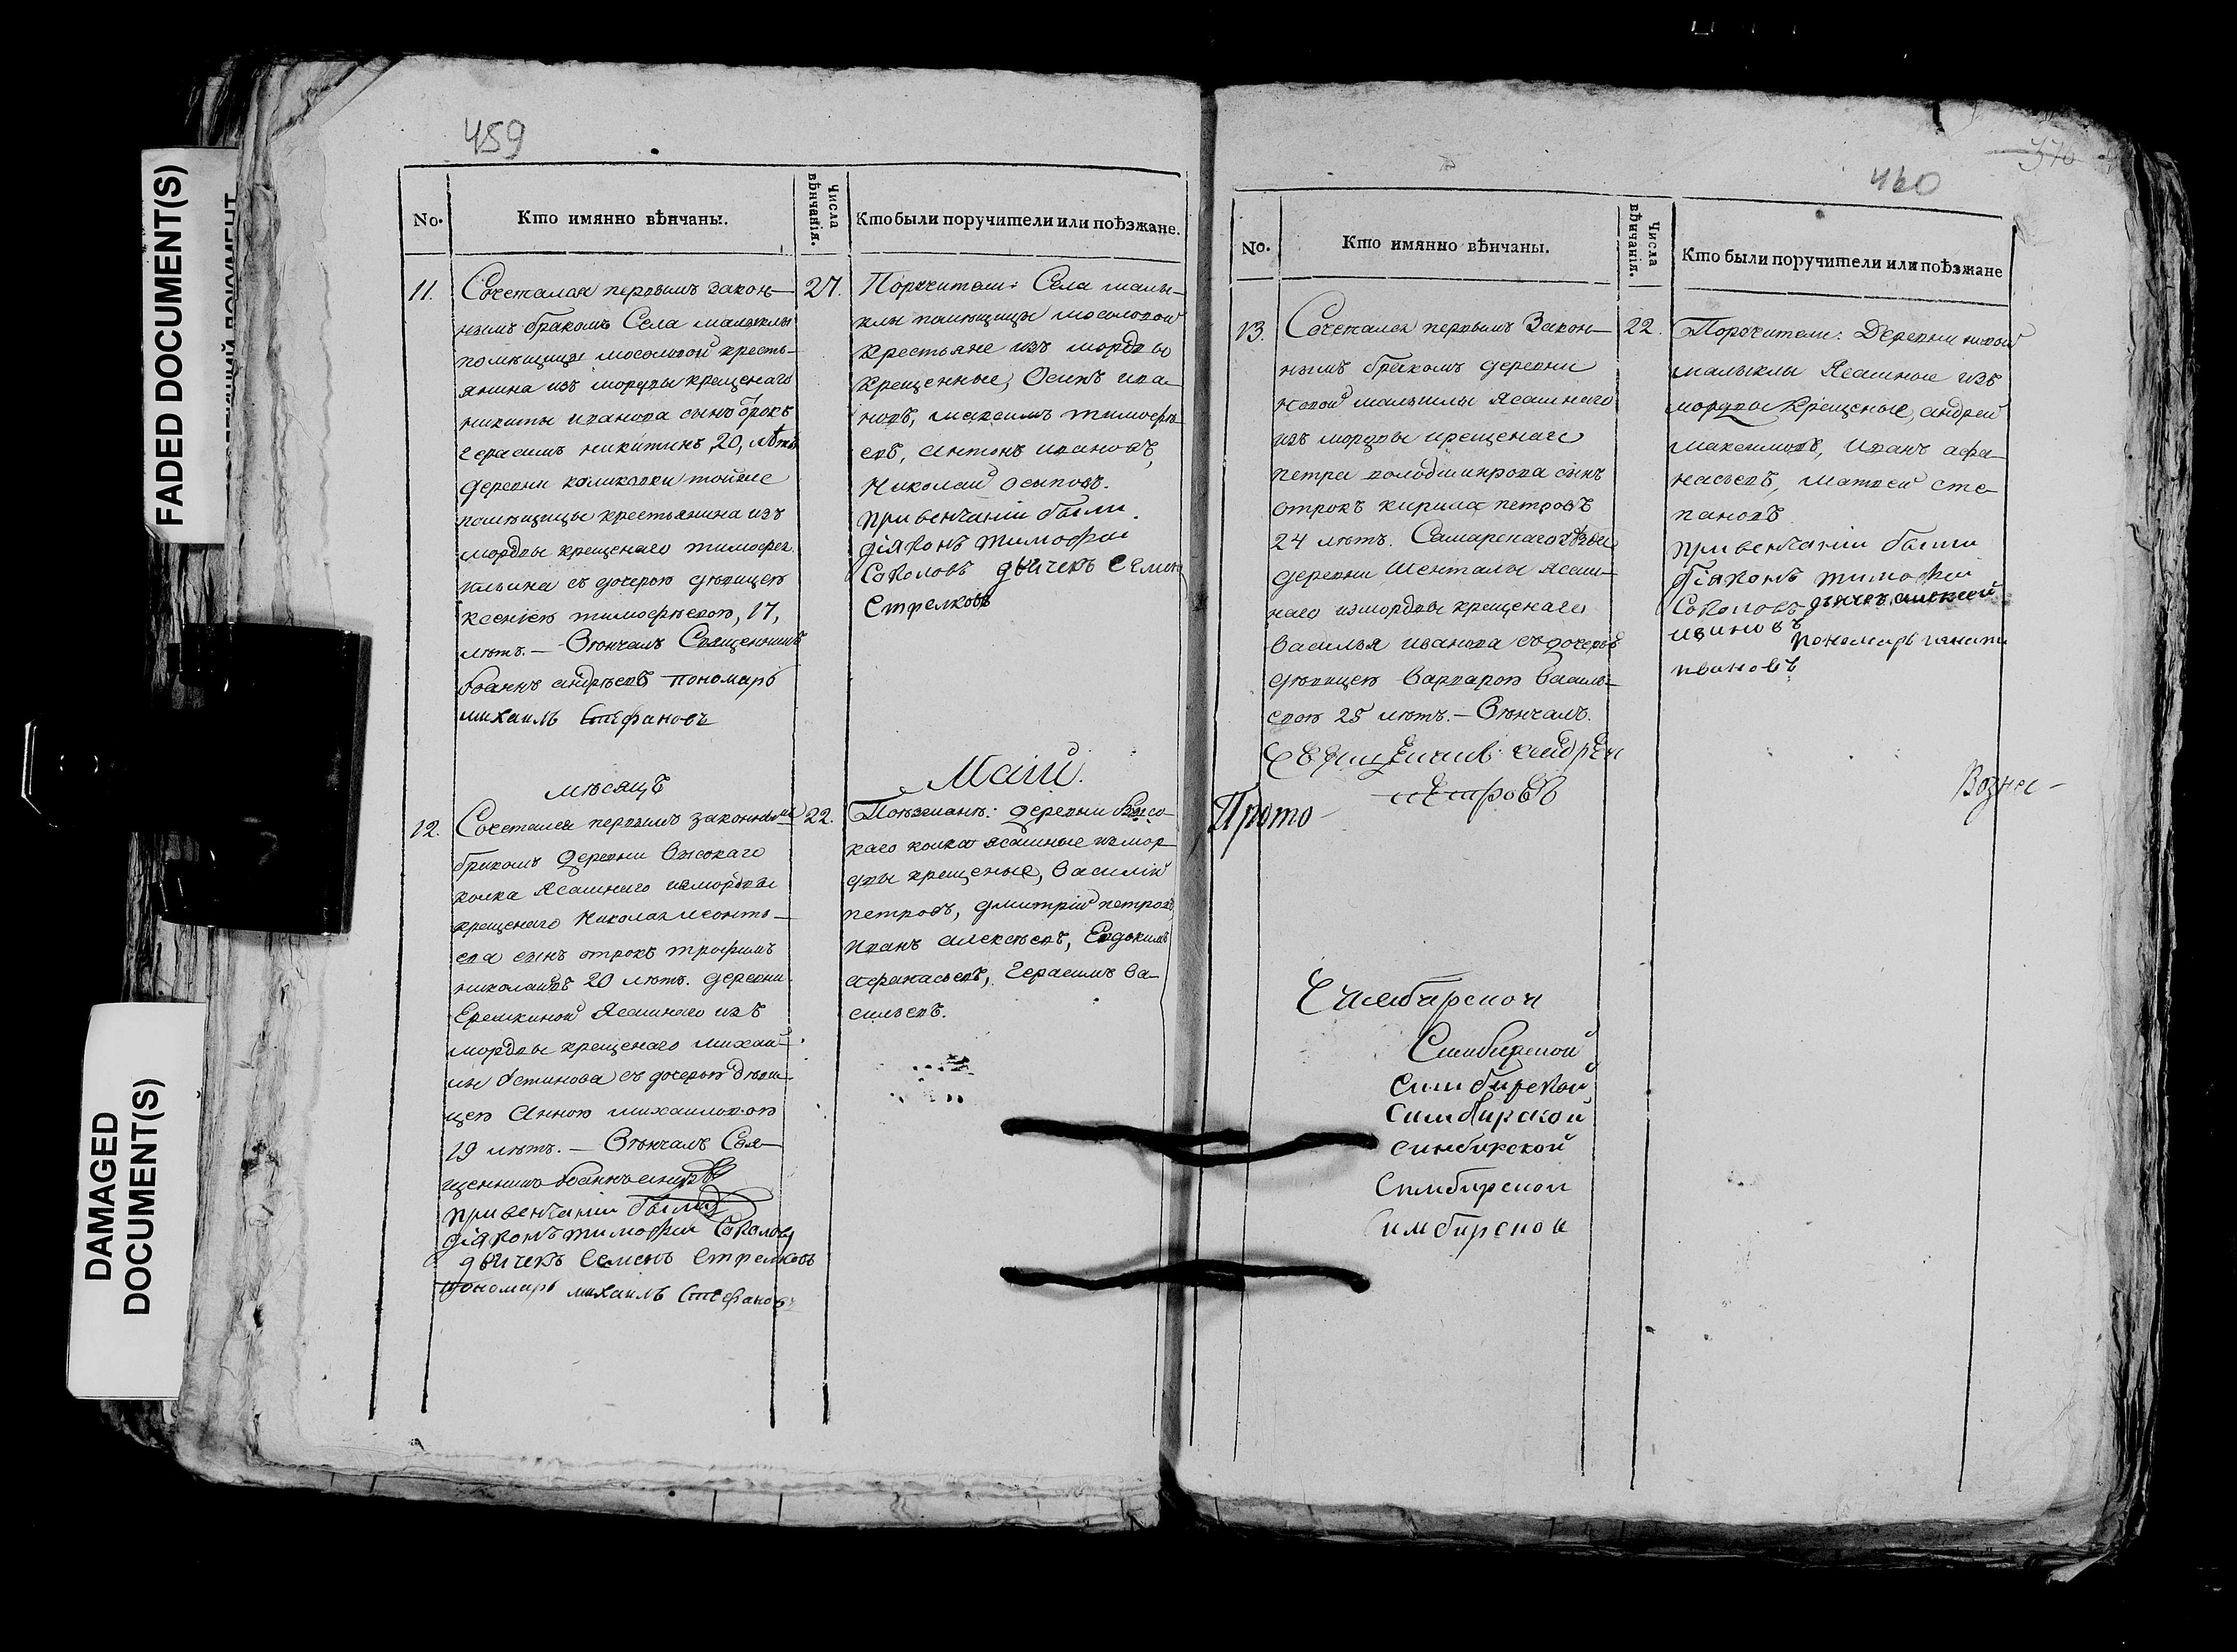 FADED DOCUMENT(S)
DAMAGED
DOCUMENT(S)
459
No.
Кто имянно вѣнчаны.
Числа
вѣнчанія.
Кто были поручители или поѣзжане.
11.
Сочетался первымъ закон-
нымъ бракомъ Села малыклы
помѣщицы мосоловой кресть-
янина изъ мордвы крещенаго
никиты иванова сынъ отрокъ
герасимъ никитинъ, 20, лѣтъ
деревни
тойже
помѣщицы крестьянина изъ
мордвы крещенаго тимофея
ильина съ дочерью дѣвицею
ксеніею тимофѣевою, 17,
лѣтъ. — Вѣнчалъ Священникъ
Іоаннъ андрѣевъ пономарь
михаилъ Стефановъ
27.
Поручители: Села малы-
клы помѣщицы мосоловой
крестьяне изъ мордвы
крещенные, Осипъ ива-
новъ, максимъ тимофѣ-
евъ, антонъ ивановъ,
Николай осиповъ.
при венчаніи были
діяконъ тимофѣй
Соколовъ дьячекъ Семенъ
Стрелковъ
мѣсяцъ
Маій.
12.
Сочетался первымъ законнымъ
бракомъ деревни Высокаго
колка Ясашнаго изъ мордвы
крещенаго Николая леонть-
ева сынъ отрокъ трофимъ
николаевъ 20 лѣтъ. деревни
Еремкиной Ясашнаго изъ
мордвы крещенаго михай-
лы Устинова съ дочерью дѣви-
цею Анною михаиловою
19 лѣтъ. — Вѣнчалъ Свя-
щенникъ Іоаннъ андрѣевъ
при венчаніи были
діяконъ тимофѣй Соколовъ
дьячекъ Семенъ Стрелковъ
пономарь михаилъ Стефановъ
22.
Поѣзжанѣ: деревни Высо-
каго колка ясашные изъ мор-
двы крещеные, Василій
петровъ, дмитрій петровъ,
иванъ алексѣевъ, Евдокимъ
афанасьевъ, Герасимъ Ва-
сильевъ.
370
460
No.
Кто имянно вѣнчаны.
Числа
вѣнчанія.
Кто были поручители или поѣзжане
13.
Сочетался первымъ Закон-
нымъ бракомъ деревни
Новой малыклы Ясашнаго
изъ мордвы крещенаго
петра володимирова сынъ
отрокъ кирила петровъ
24 лѣтъ. Самарскаго уѣзда
деревни Шенталы ясаш-
наго изъ мордвы крещенаго
Василья иванова съ дочерью
дѣвицею Варварою Василь-
евою 25 лѣтъ. — Вѣнчалъ.
Священникъ андрей
петровъ
22.
Поручители: Деревни новой
малыклы Ясашные изъ
мордвы крещеные, андрей
максимовъ, Иванъ афа-
насьевъ, матвей сте-
пановъ
при венчаніи были
діяконъ тимофѣй
Соколовъ дьячекъ алексей
ивановъ
пономарь
ивановъ
Прото-
Возне-
Симбирской
Симбирской
Симбирской
Симбирской
Синбирской
Симбирской
Симбирской